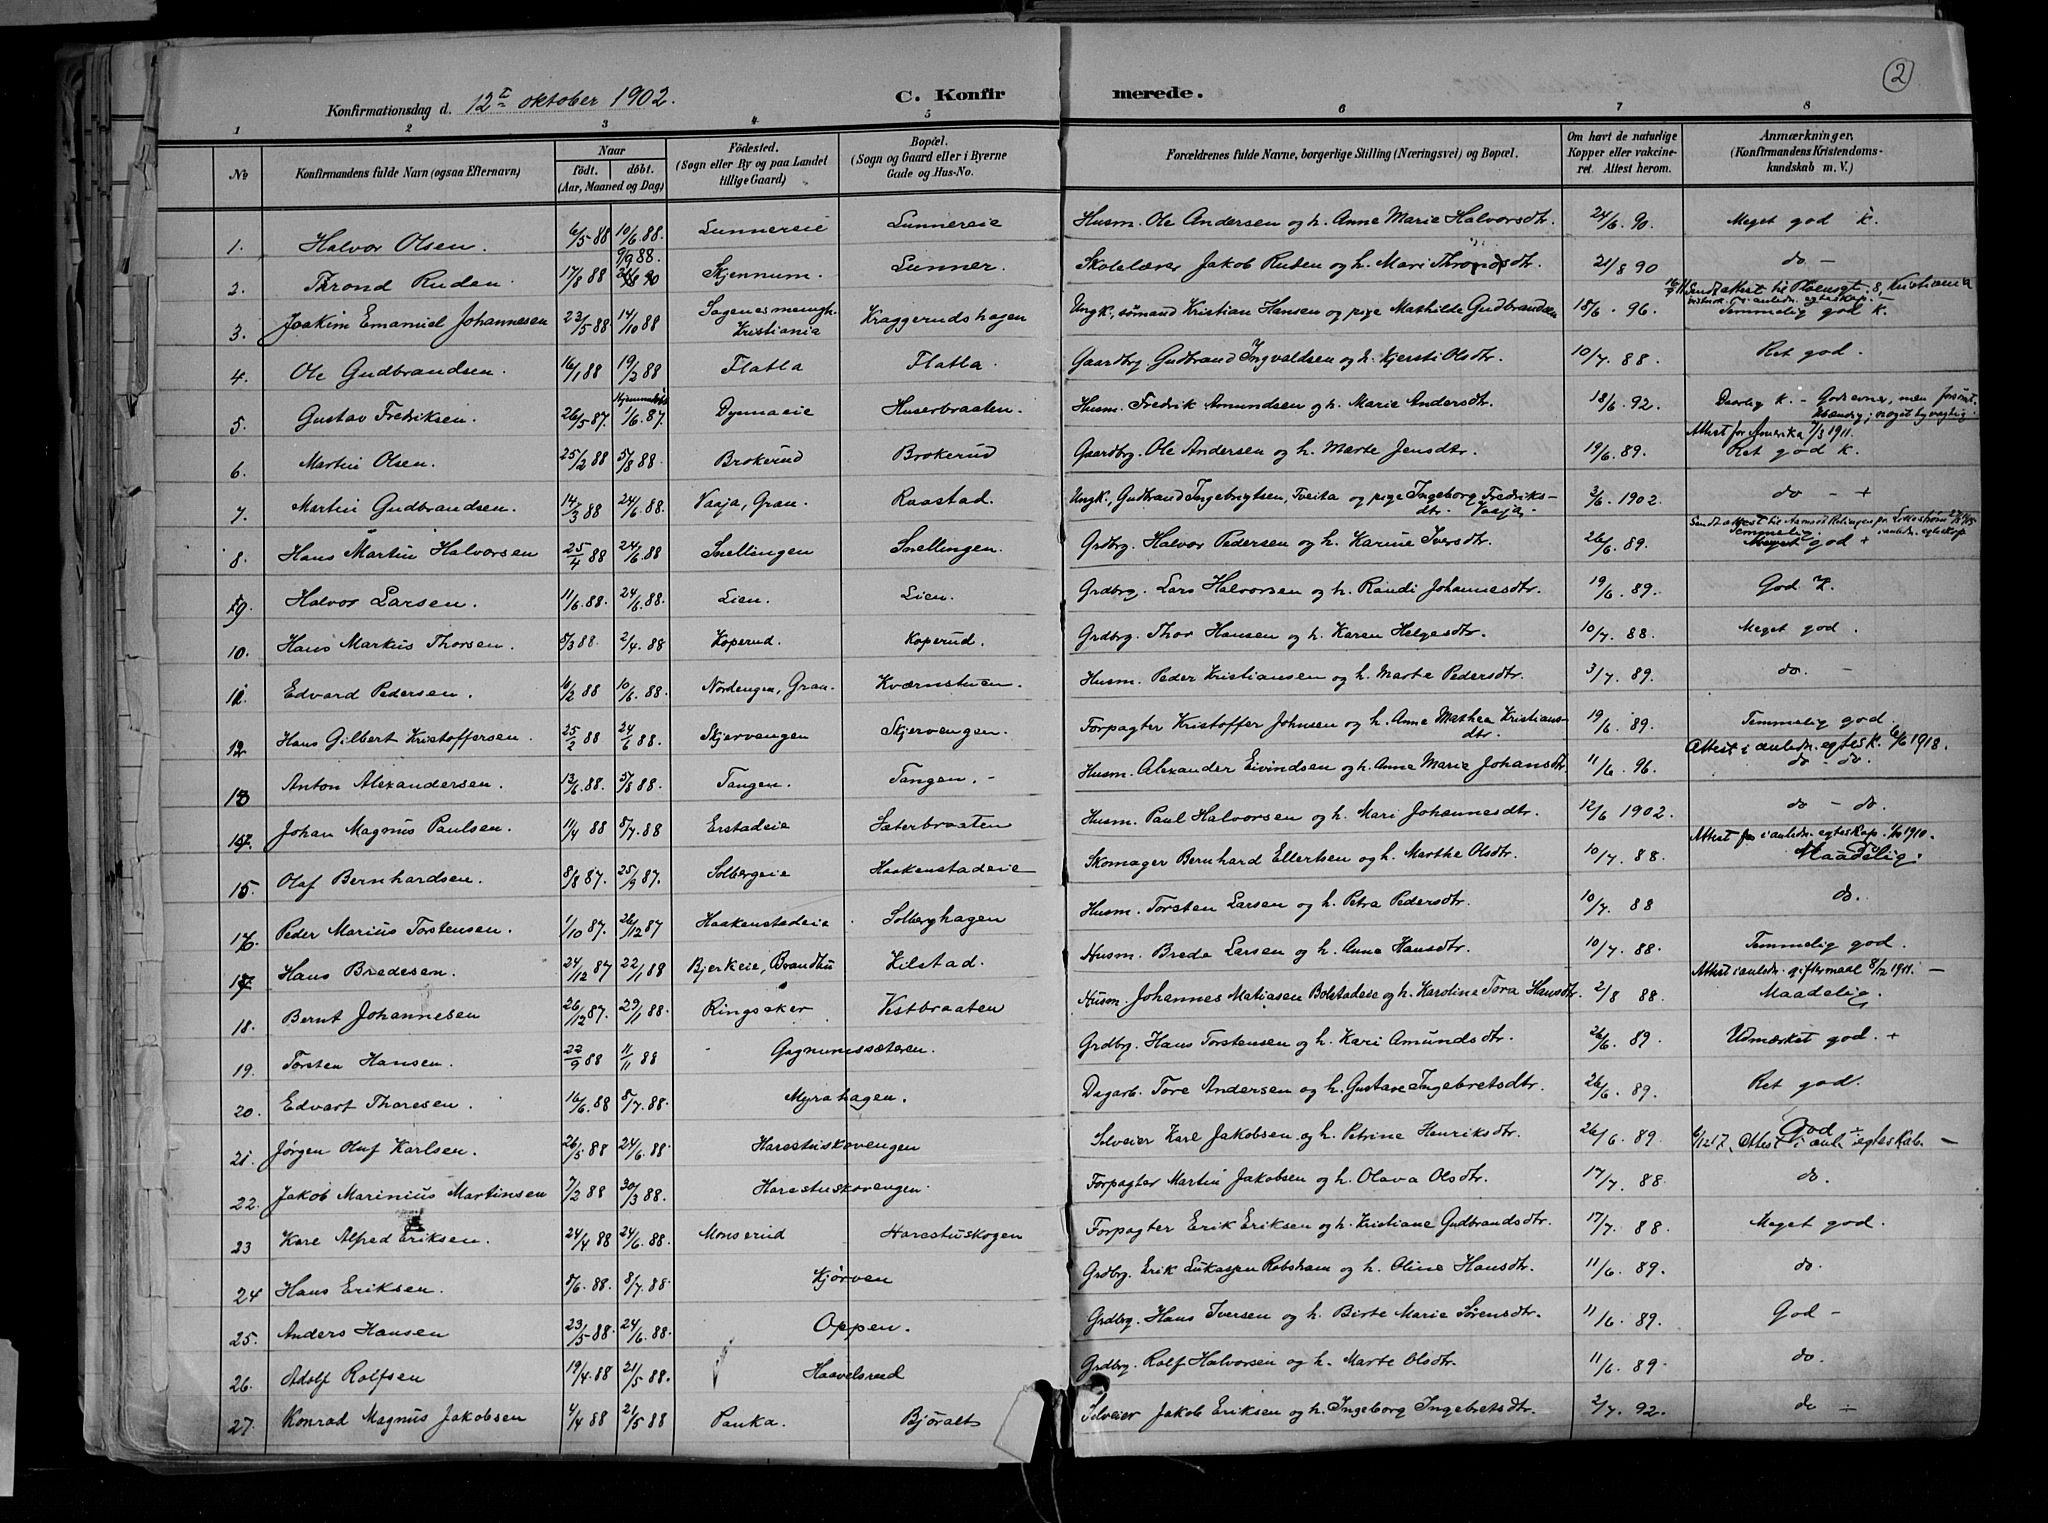 2
Konfirmationsdag d. 12te oktober 1902. C. Konfir merede.
1 2 3 4 5 6 7 8
No Konfirmandens fulde Navn (ogsaa Efternavn) Naar födt. döbt. (Aar, Maaned og Dag) Födested. (Sogn eller By og paa Landet tillige Gaard) Bopæl. (Sogn og Gaard eller i Byerne Gade og Hus-No. Forældrenes fulde Navne, borgerlige Stilling (Næringsvei) og Bopæl. Om havt de naturlige Kopper eller vakcineret. Attest herom. Anmærkninger. (Konfirmandens Kristendomskundskab m. V.)
1. Halvor Olsen. 6/5 88 10/6 88. Lunnereie Lunnereie Husm. Ole Andersen og h. Anne Marie Halvorsdtr. 24/6. 90. Meget god k.
2. Thrond Ruden. 17/8 88 9/9 88. Skjennum. Lunner. Skolelærer Jakob Ruden og h. Mari Throndsdtr. 21/8 90 do –
3. Joakim Emanuel Johannesen 23/5 88 14/10 88 Sagenes menigh. Kristiania Kraggerudshagen Ungk., sømand Kristian Hansen og pige Mathilde Gudbrandsen 18/6. 96. Temmelig god k.
4. Ole Gudbrandsen. 16/1 88 19/2 88 Flatla Flatla. Gaardbrg. Gudbrand Ingvaldsen og h. Kjersti Olsdtr. 10/7. 88. Ret god.
5. Gustav Fredriksen. 26/5 87. Hjemmedøbt 1/6 87. Dynnaeie Huserbraaten. Husm. Fredrik Amundsen og h. Marie Andersdtr. 18/6. 92. Daarlig k. – Gode evner, men
6. Martin Olsen. 25/2 88 5/8 88. Brokerud Brokerud Gaardbrg. Ole Andersen og h. Marte Jensdtr. 19/6. 89. Attest for Amerika 7/3 1911. Ret god k.
7. Martin Gudbrandsen. 14/3 88 24/6 88. Vaaja, Gran. Raastad. Ungk. Gudbrand Ingebrigtsen, Tveita og pige Ingeborg Fredriksdtr. Vaaja. 3/6. 1902. do – +
8. Hans Martin Halvorsen 25/4 88 24/6 88 Snellingen Snellingen. Grdbrg. Halvor Pedersen og h. Karine Iversdtr. 26/6. 89. Temmelig god +
9. Halvor Larsen. 11/6. 88. 24/6. 88. Lien. Lien. Grdbrg. Lars Halvorsen og h. Randi Johannesdtr. 19/6. 89. God
10. Hans Markus Thorsen. 5/3 88. 2/4. 88 Koperud. Koperud. Grdbrg. Thor Hansen og h. Karen Helgesdtr. 10/7. 88. Meget god.
11. Edvard Pedersen. 88 10/6. 88. Nordengen, Gran. Kværnstuen. Husm. Peder Kristiansen og h. Marte Pedersdtr. 3/7. 89. do. –
12. Hans Gilbert Kristoffersen. 25/2 88 24/6 88. Skjervengen Skjervengen. Forpagter Kristoffer Johnsen og h. Anne Mathea Kristiansdtr. 19/6. 89. Temmelig god.
13 Anton Alexandersen. 13/6. 88. 5/8 88. Tangen. Tangen. – Husm. Alexander Eivindsen og h. Anne Marie Johansdtr. 11/6. 96. Attest i anledn. egtesk. 1918. do – do.
14. Johan Magnus Paulsen. 11/4 88 8/7. 88 Erstadeie Sæterbraaten Husm. Paul Halvorsen og h. Mari Johannesdtr. 12/6 1902. do – do.
15. Olaf Bernhardsen. 8/8 87. 25/9 87. Solbergeie Haakenstadeie Skomager Bernhard Ellertsen og h. Marthe Olsdtr. 10/7. 88. Attest i anledn. egteskap. 1910. Maadelig.
16. Peder Marius Torstensen. 1/10 87. 26/12 87 Haakenstadeie. Solberghagen Husm. Torsten Larsen og h. Petra Pedersdtr. 10/7. 88 do.
17. Hans Bredesen. 24/12 87 22/1 88 Bjerkeie, Brandbu Kilstad. Husm. Brede Larsen og h. Anne Hansdtr. 10/7. 88. Temmelig god.
18. Bernt Johannesen 26/12 87. 29/1 88. Ringsaker Vestbraaten Husm. Johannes Matiasen Bolstadeie og h. Karoline Tora Hansdtr. 2/8 88. Attest i anledn. giftermaal 8/12 1911. – Maadelig.
19. Torsten Hansen. 22/9 88 11/11 88 Gagnumssæteren. Grdbrg. Hans Torstensen og h. Kari Amundsdtr. 26/6. 89. Udmærket god. +
20. Edvart Thoresen. 16/6. 88 8/7. 88. Myrahagen. Dagarb. Tore Andersen og h. Gustave Ingebretsdtr. 26/6. 89. Ret god.
21. Jørgen Oluf Karlsen. 26/5 88 24/6. 88. Harestuskovengen Selveier Karl Jakobsen og h. Petrine Henriksdtr. 26/6. 89. God Attest i anl. egteskab. –
22. Jakob Marinius Martinsen 7/2 88 30/3 88. Harestuskovengen. Forpagter Martin Jakobsen og h. Olava Olsdtr. 17/7. 88. do.
23 Karl Alfred Eriksen. 24/4 88 24/6. 88. Monserud Harestuskogen Forpagter Erik Eriksen og h. Kristiane Gudbrandsdtr. 17/7. 88. Meget god.
24 Hans Eriksen. 8/6. 88. 8/7. 88 Kjørven Grdbrg. Erik Lukassen Robsham og h. Oline Hansdtr. 11/6. 89. do.
25. Anders Hansen 23/5 88. 24/6. 88. Oppen. Grdbrg. Hans Iversen og h. Birte Marie Sørensdtr. 11/6. 89. God –
26. Adolf Rolfsen 19/4. 88 21/5 88. Haavelsrud Grdbrg. Rolf Halvorsen og h. Marte Olsdtr. 11/6. 89 do.
27. Konrad Magnus Jakobsen 4/4 88 21/5 88 Panka. Bjøralt Selveier Jakob Eriksen og h. Ingeborg Ingebretsdtr. 2/7. 92. do –